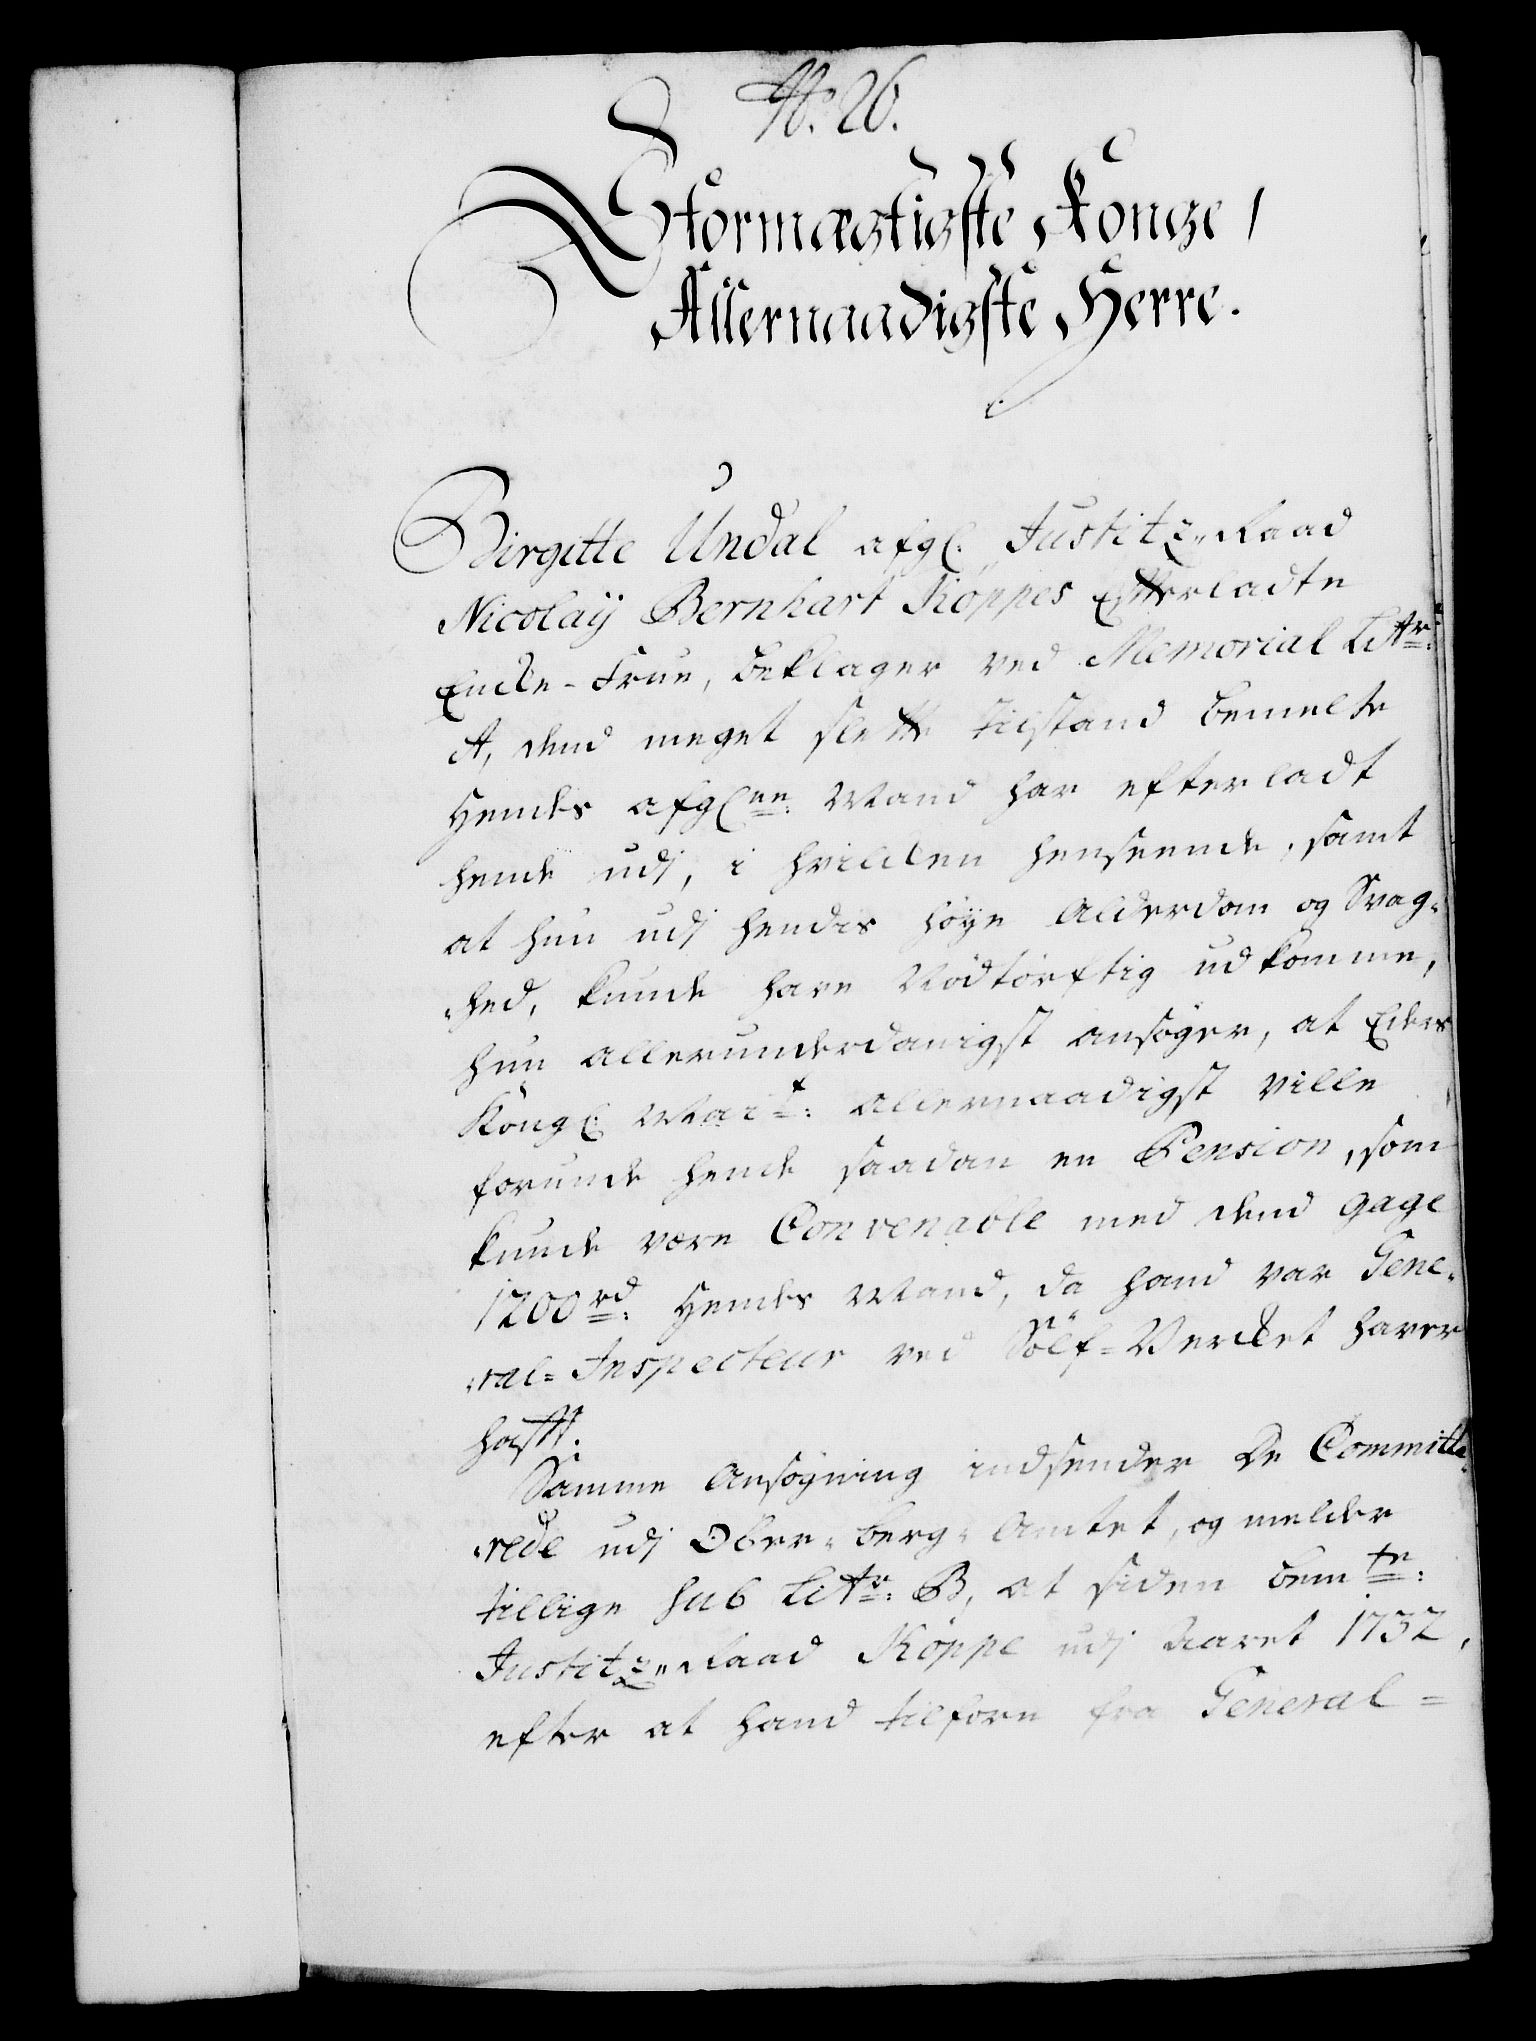 No. 26.
Stormægtigste Konge /
Allernaadigste Herre.
Birgitte Undal afgl. Justitz„Raad
Nicolaÿ Bernhart Köppes Efterladte
Encke-Frue, beklager ved Memorial Litr:
A, dend meget slette tilstand bemelte
Hendes afglne: Mand har efterladt
hende udj, i hvilcken henseende, samt
at hun udj hendes høye Alderdom og Svag-
-hed, kunde have Nødtørftig udkomme,
hun allerunderdanigst ansøger, at Eders
Kongl: Mait: allernaadigst ville
forunde hende saadan en Pension, som
kunde være Convenable med dend gage
1200 rd: Hendes Mand, da hand var Gene-
-ral-Inspecteur ved Sölf-Vercket haver
hafft.
Samme Ansøgning indsender De Committe-
-rede udj Ober-berg-Amtet, og melder
tillige sub Litr: B, at siden bemte:
Justitz„Raad Köppe udj Aaret 1732,
efter at hand tilforn fra General-